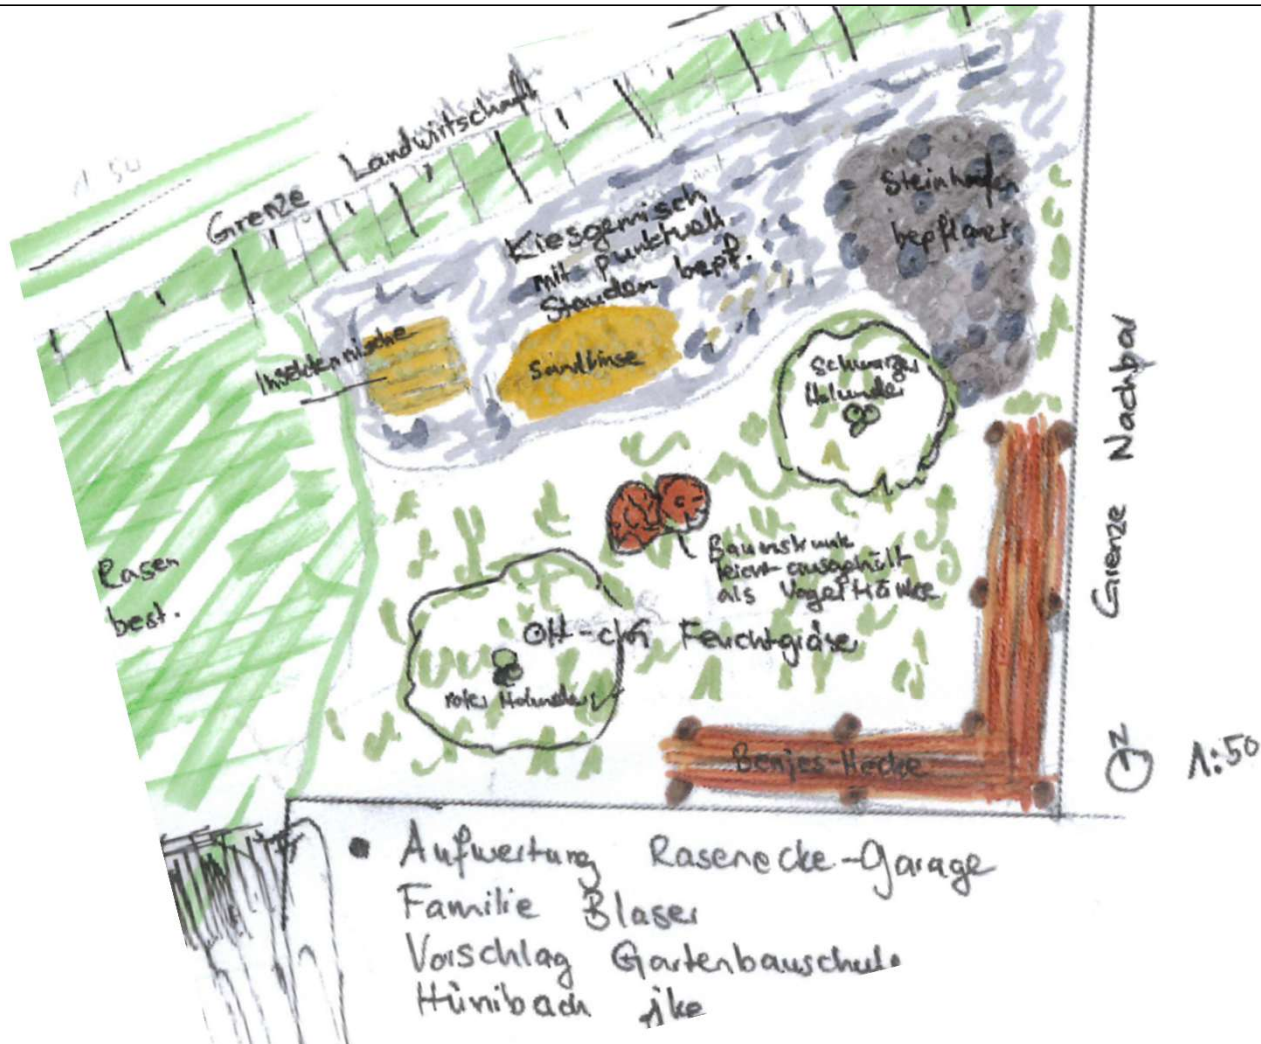 1:50
Grenze Landwirtschaft
Kiesgemisch
mit punktuell
Stauden bepf.
Steinhaufen
bepflanzt
Insektennische
Sandlinse
Schwarzer
Holunder
Grenze Nachbar
Baumstrunk
leicht ausgehölt
als Vogeltränke
Rasen
best.
Feuchtgräser
roter Holunder
Benjes-Hecke
N
1:50
Aufwertung Rasenecke-Garage
Familie Blaser
Vorschlag Gartenbauschule
Hünibach